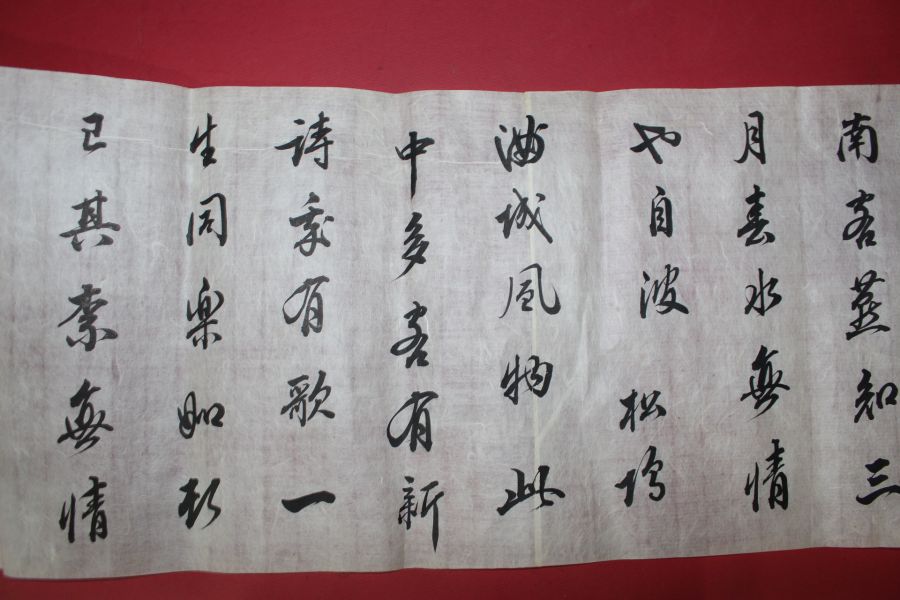 南客蓋知三
月春水無情
也自波松塢
海城風物此
中多客有新
詩我有歌一
生同樂如形
已其素無情